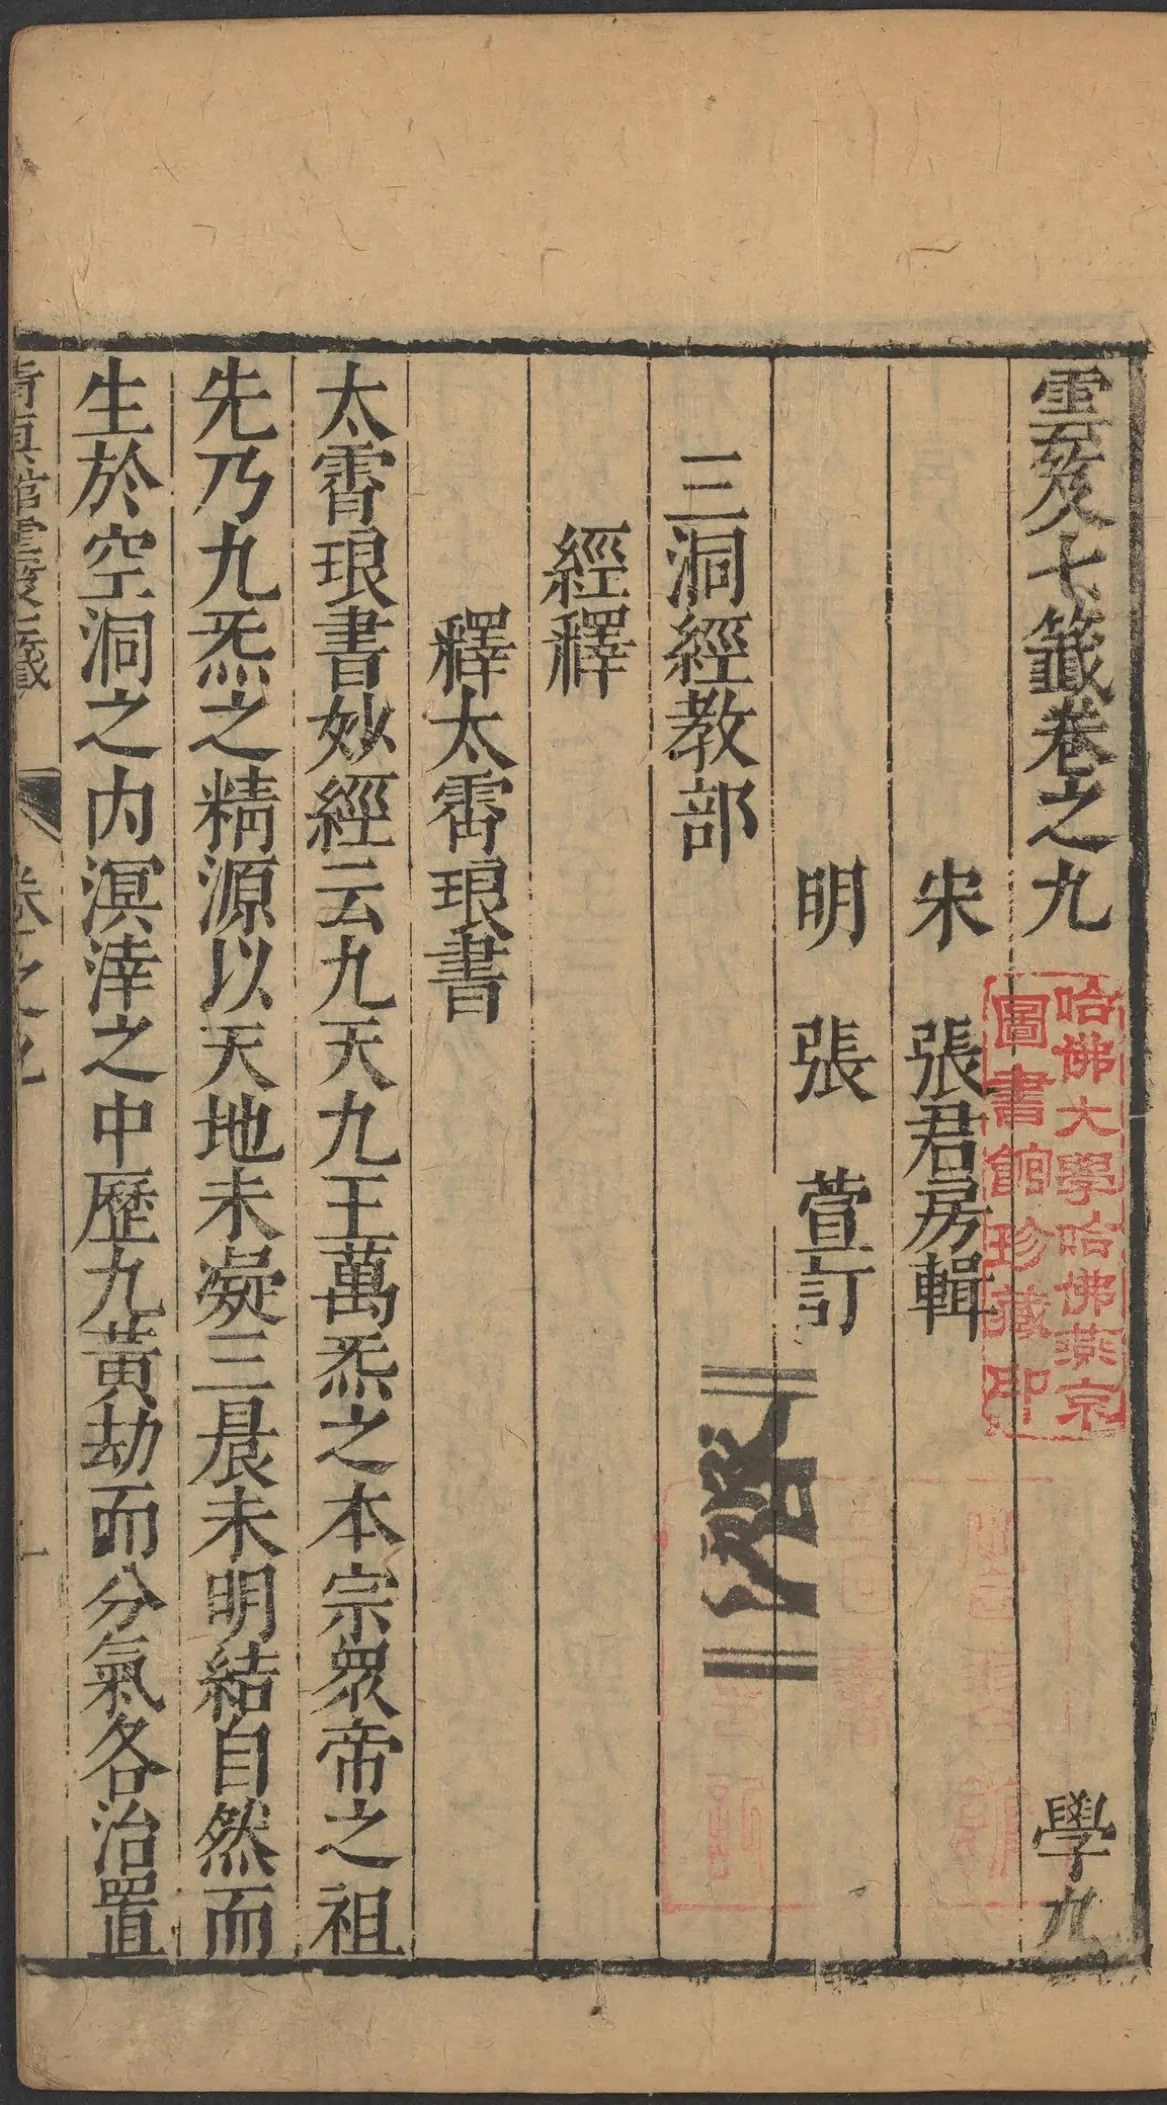 雲笈七籤卷之九 學九
宋 張君房輯
明 張 萱訂
三洞經教部
經釋
釋太霄琅書
太霄琅書妙經云九天九王萬炁之本宗衆帝之祖
先乃九炁之精源以天地未凝三晨未明結自然而
生於空洞之内溟涬之中歷九黃劫而分氣各治置
清真館雲笈七籤 卷之九 一
哈佛大學哈佛燕京
圖書館珍藏印